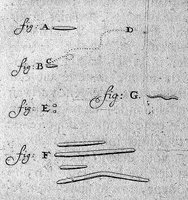 fig: A
D
fig: B C
fig: E
fig: G.
fig: F